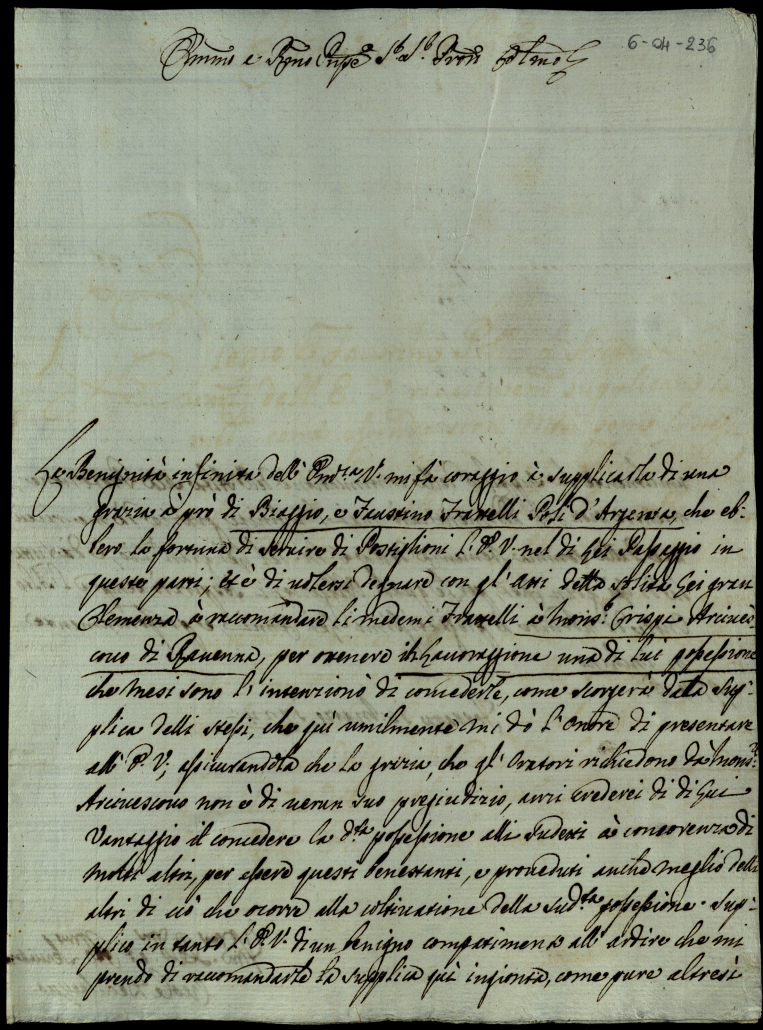 6-04-236
Emmo e Rmo Pnpe S.r S.r Pron Colmo
La Benignità infinita dell' Em.za V. mi fà coraggio à supplicarla di una
grazia à prò di Biaggio, e Faustino Fratelli Poli d'Argenta, che eb-
bero la fortuna di servire di Postiglioni l'E. V. nel di Lei Passaggio in
queste parti; et è di volersi degnare con gl' atti della solita Lei gran
Clemenza à raccomandare li medemi Fratelli à Mons.r Crispi Arcives-
covo di Ravenna, per ottenere in Lavoraggione una di lui possessione
che mesi sono l' intenzionò di concederle, come scorgerà dalla sup-
plica delli stessi, che quì umilmente mi dò l'Onore di presentare
all' E. V., assicurandola che la grazia, che gl' Oratori richiedono dà Mons.r
Arcivescovo non è di verun suo pregiudizio, anzi crederei di di Lui
Vantaggio il concedere la d.ta possessione alli sudetti à concorenza di
molti altri, per essere questi benestanti, e proveduti anche meglio delli
altri di ciò che ocorre alla coltivatione della sud.ta possessione. Sup-
plico in tanto l'E. V. di un benigno compatimento all' ardire che mi
prendo di raccomandarle la supplica quì ingionta, come pure altresì